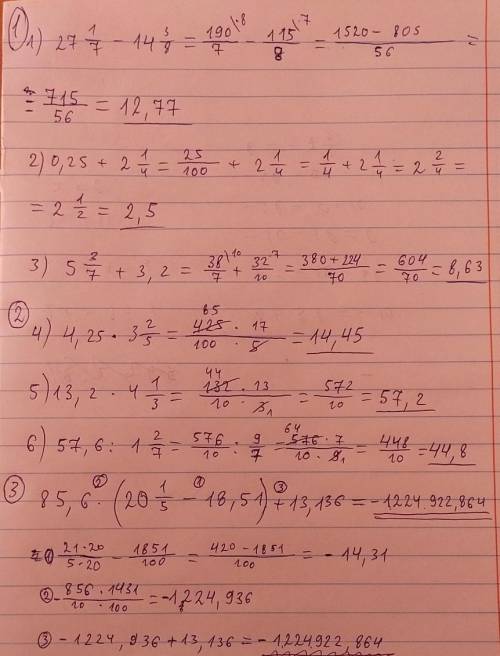 ① 1) 27 1/7 − 14 3/8 = 190\·8/7 − 115\·7/8 = 1520 − 805/56 =
= 715/56 = 12,77
2) 0,25 + 2 1/4 = 25/100 + 2 1/4 = 1/4 + 2 1/4 = 2 2/4 =
= 2 1/2 = 2,5
3) 5 3/7 + 3,2 = 38\10/7 + 32·7/10 = 380 + 224/70 = 604/70 = 8,63
② 4) 4,25 · 3 2/5 = 85 425 · 17/100 · 5 = 14,45
5) 13,2 · 4 1/3 = 44 132 · 13/10 · 3 1 = 572/10 = 57,2
6) 57,6 : 1 2/7 = 576/10 : 9/7 = 64 576 · 7/10 · 9 1 = 448/10 = 44,8
③ 85,6 ·② (20 1/5 −① 18,51) +③ 13,136 = −1224.922,864
① 21·20/5·20 − 1851/100 = 420 − 1851/100 = − 14,31
② − 856 · 1431/10 · 100 = −1224,936
③ − 1224,936 + 13,136 = − 1224922,864